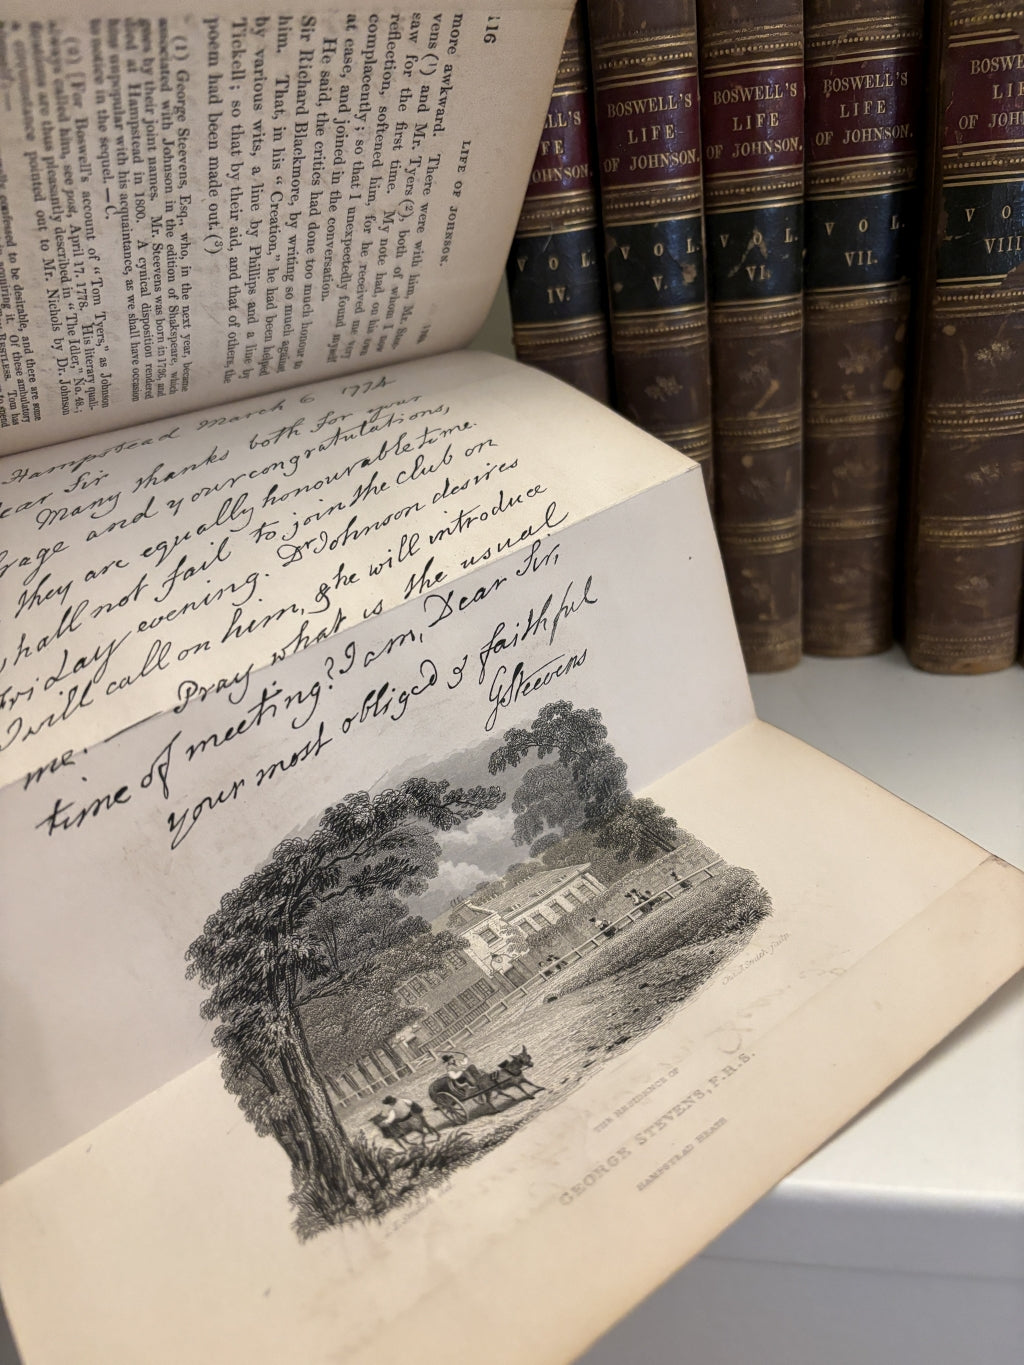 116
LIFE OF JOHNSON.
more awkward. There were with him, Mr. Stee-
vens (¹) and Mr. Tyers (²), both of whom I now
saw for the first time. My note had, on his own
reflection, softened him, for he received me very
complacently; so that I unexpectedly found myself
at ease, and joined in the conversation.
He said, the critics had done too much honour to
Sir Richard Blackmore, by writing so much against
him. That, in his "Creation," he had been helped
by various wits, a line by Phillips and a line by
Tickell; so that by their aid, and that of others, the
poem had been made out. (³)
(1) George Steevens, Esq., who, in the next year, became
associated with Johnson in the edition of Shakspeare, which
goes by their joint names. Mr. Steevens was born in 1736, and
died at Hampstead in 1800. A cynical disposition rendered
him unpopular with his acquaintance, as we shall have occasion
to notice in the sequel. — C.
(2) [For Boswell's account of "Tom Tyers," as Johnson
always called him, see post, April 17. 1778. His literary quali-
are thus pleasantly described in "The Idler," No. 48.;
a circumstance pointed out to Mr. Nichols by Dr. Johnson
confessed to be desirable, and there are some
acquiring it. Of these ambulatory
RESTLESS. Tom has
Hampstead March 6 1774
ear Sir
Many thanks both for your
rage and your congratulations,
they are equally honourable to me.
hall not fail to join the club on
riday evening. Dr Johnson desires
I will call on him, & he will introduce
me. — Pray what is the usual
time of meeting? I am, Dear Sir,
your most obliged & faithful
GSteevens
Chas J Smith sculp
THE RESIDENCE OF
GEORGE STEVENS, F.R.S.
HAMPSTEAD HEATH
LL'S
FE
OHNSON.
VOL.
IV.
BOSWELL'S
LIFE
OF JOHNSON.
VOL.
V.
BOSWELL'S
LIFE
OF JOHNSON.
VOL.
VI.
BOSWELL'S
LIFE
OF JOHNSON.
VOL.
VII.
BOSWE
LIF
OF JOHN
VO
VIII